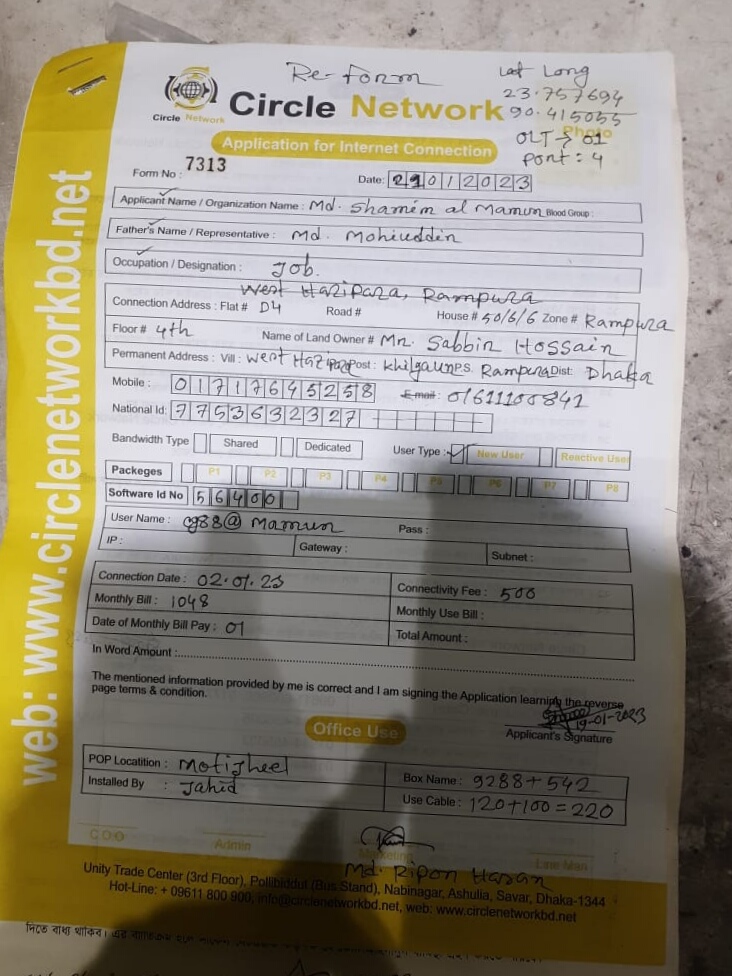 Re-form
Lat Long
23.757694
90.415055
OLT → 01
Port : 4
Photo
Circle Network
Circle Network
Application for Internet Connection
Form No : 7313
Date: 29012023
Applicant Name / Organization Name : Md. Shamim al Mamun Blood Group :
Father's Name / Representative : Md. Mohiuddin
Occupation / Designation : Job.
West Hazipara, Rampura
Connection Address : Flat # D4 Road # House # 50/6/6 Zone # Rampura
Floor # 4th Name of Land Owner # Mr. Sabbir Hossain
Permanent Address : Vill : West Hazipara Post : Khilgaun P.S. Rampura Dist: Dhaka
Mobile : 01717645258 Email : 01611100841
National Id: 7753632327
Bandwidth Type Shared Dedicated User Type : New User Reactive User
Packeges P1 P2 P3 P4 P5 P6 P7 P8
Software Id No 56400
User Name : cg88@Mamun Pass :
IP : Gateway : Subnet :
Connection Date : 02.01.23 Connectivity Fee : 500
Monthly Bill : 1048 Monthly Use Bill :
Date of Monthly Bill Pay : 01 Total Amount :
In Word Amount :
The mentioned information provided by me is correct and I am signing the Application learning the reverse
page terms & condition.
19-01-2023
Applicant's Signature
Office Use
POP Locatition : Motijheel Box Name : 9288+542
Installed By : Jahid Use Cable : 120+100=220
C O O Admin Marketing Line Man
Md. Ripon Hasan
Unity Trade Center (3rd Floor), Pollibiddut (Bus Stand), Nabinagar, Ashulia, Savar, Dhaka-1344
Hot-Line: + 09611 800 900, info@circlenetworkbd.net, web: www.circlenetworkbd.net
web: www.circlenetworkbd.net
দিতে বাধ্য থাকিব।